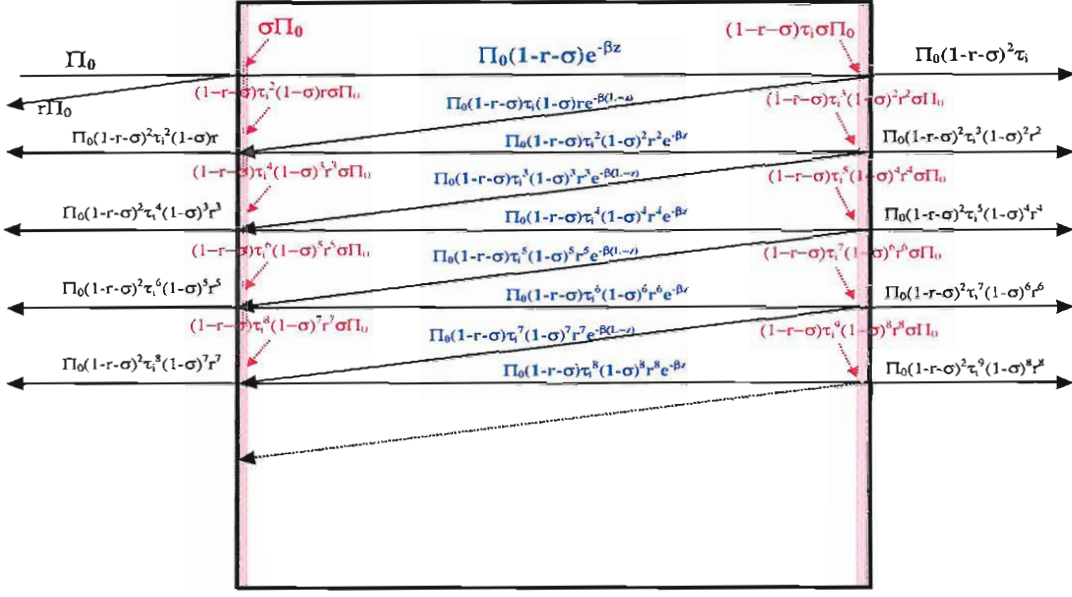 σΠ₀ (1-r-σ)τᵢσΠ₀
Π₀ Π₀(1-r-σ)e^-βz Π₀(1-r-σ)²τᵢ
rΠ₀ (1-r-σ)τᵢ²(1-σ)rσΠ₀ Π₀(1-r-σ)τᵢ(1-σ)re^-β(L-z) (1-r-σ)τᵢ³(1-σ)²r²σΠ₀
Π₀(1-r-σ)²τᵢ²(1-σ)r Π₀(1-r-σ)τᵢ²(1-σ)²r²e^-βz Π₀(1-r-σ)²τᵢ³(1-σ)²r²
(1-r-σ)τᵢ⁴(1-σ)³r³σΠ₀ Π₀(1-r-σ)τᵢ³(1-σ)³r³e^-β(L-z) (1-r-σ)τᵢ⁵(1-σ)⁴r⁴σΠ₀
Π₀(1-r-σ)²τᵢ⁴(1-σ)³r³ Π₀(1-r-σ)τᵢ⁴(1-σ)⁴r⁴e^-βz Π₀(1-r-σ)²τᵢ⁵(1-σ)⁴r⁴
(1-r-σ)τᵢ⁶(1-σ)⁵r⁵σΠ₀ Π₀(1-r-σ)τᵢ⁵(1-σ)⁵r⁵e^-β(L-z) (1-r-σ)τᵢ⁷(1-σ)⁶r⁶σΠ₀
Π₀(1-r-σ)²τᵢ⁶(1-σ)⁵r⁵ Π₀(1-r-σ)τᵢ⁶(1-σ)⁶r⁶e^-βz Π₀(1-r-σ)²τᵢ⁷(1-σ)⁶r⁶
(1-r-σ)τᵢ⁸(1-σ)⁷r⁷σΠ₀ Π₀(1-r-σ)τᵢ⁷(1-σ)⁷r⁷e^-β(L-z) (1-r-σ)τᵢ⁹(1-σ)⁸r⁸σΠ₀
Π₀(1-r-σ)²τᵢ⁸(1-σ)⁷r⁷ Π₀(1-r-σ)τᵢ⁸(1-σ)⁸r⁸e^-βz Π₀(1-r-σ)²τᵢ⁹(1-σ)⁸r⁸